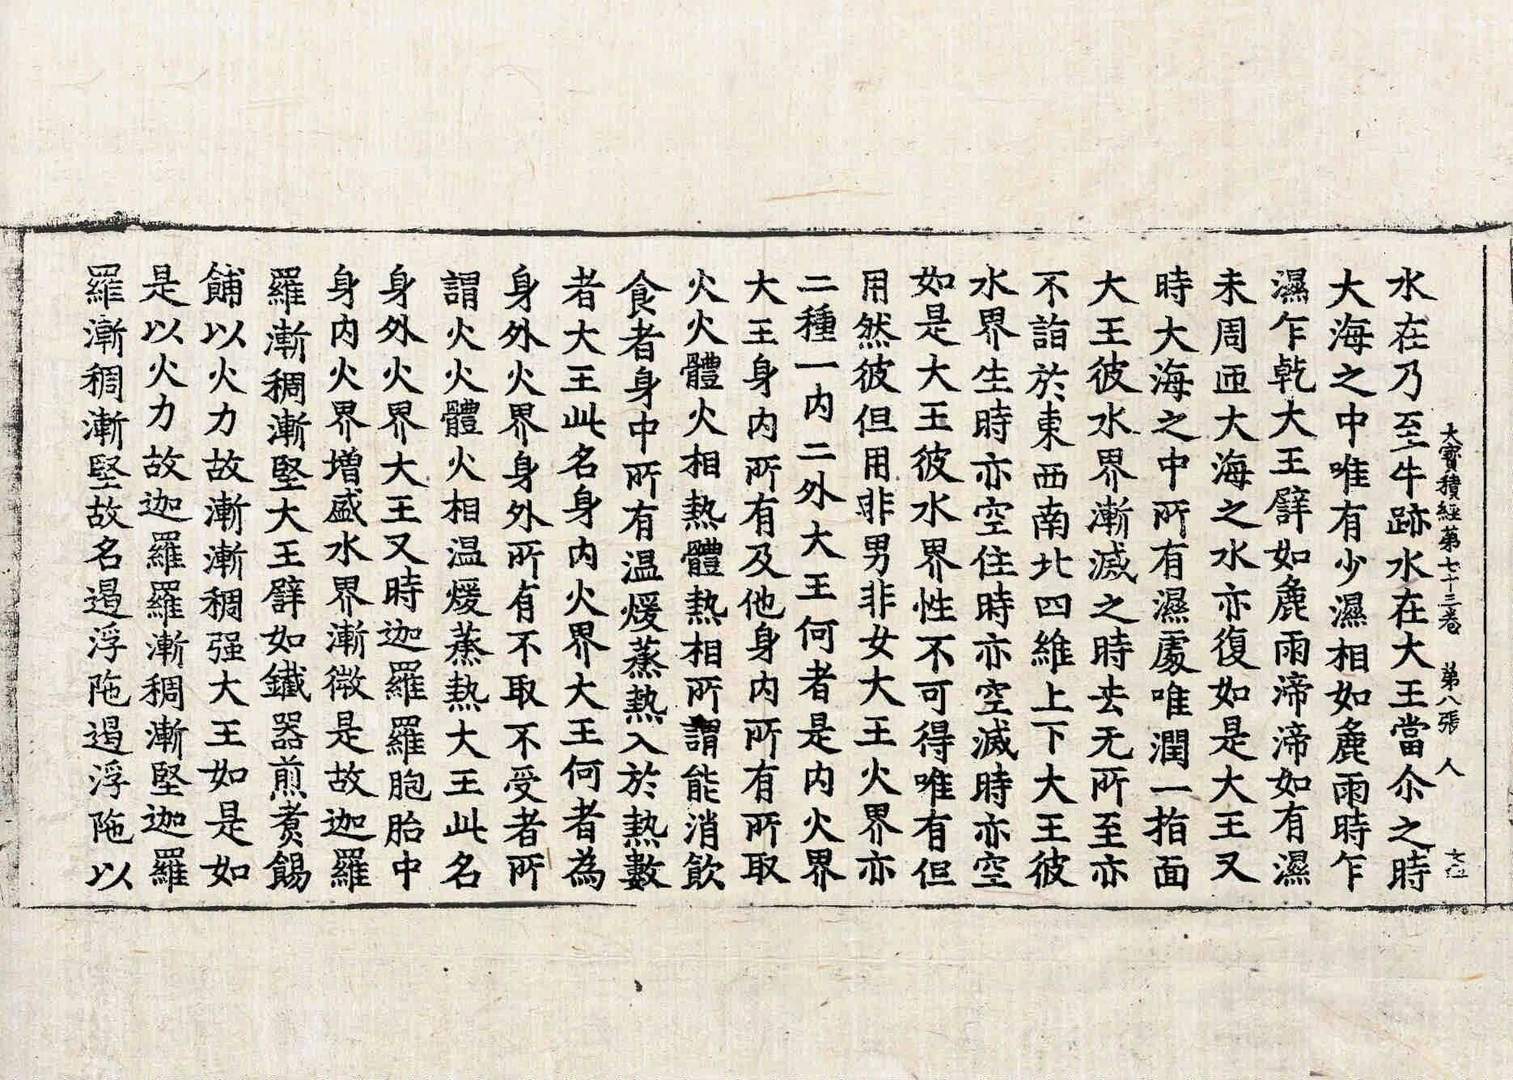 大寶積經第七十三卷 第八張 人
水在乃至牛跡水在大王當尒之時
大海之中唯有少濕相如麁雨時乍
濕乍乾大王譬如麁雨渧渧如有濕
未周迊大海之水亦復如是大王又
時大海之中所有濕處唯潤一指面
大王彼水界漸滅之時去无所至亦
不詣於東西南北四維上下大王彼
水界生時亦空住時亦空滅時亦空
如是大王彼水界性不可得唯有但
用然彼但用非男非女大王火界亦
二種一內二外大王何者是內火界
大王身內所有及他身內所有所取
火火體火相熱體熱相所謂能消飲
食者身中所有温煖蒸熱入於熱數
者大王此名身內火界大王何者為
身外火界身外所有不取不受者所
謂火火體火相温煖蒸熱大王此名
身外火界大王又時迦羅羅胞胎中
身內火界增盛水界漸微是故迦羅
羅漸稠漸堅大王譬如鐵器煎煑餳
餔以火力故漸漸稠强大王如是如
是以火力故迦羅羅漸稠漸堅迦羅
羅漸稠漸堅故名遏浮陁遏浮陁以